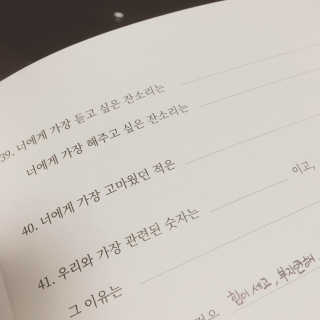 39. 너에게 가장 듣고 싶은 잔소리는
너에게 가장 해주고 싶은 잔소리는
40. 너에게 가장 고마웠던 적은
41. 우리와 가장 관련된 숫자는 이고,
그 이유는
힘이 세고,